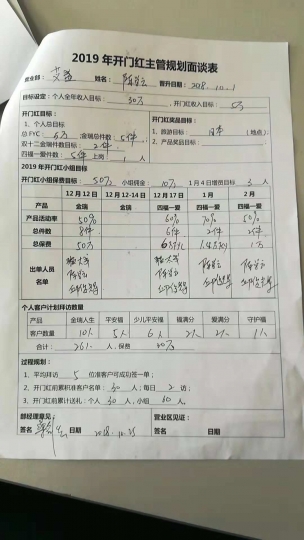 2019 年开门红主管规划面谈表
营业部： 姓名： 晋升日期：2018.10.1
目标设定：个人全年收入目标：30万，开门红收入目标：5万
开门红目标： 开门红奖品目标：
1、个人总目标 1、旅游目标：日本（地点）；
总 FYC：6万；金瑞总件数：5件； 2、产品奖品目标：
双十二金瑞件数：2件
四福一爱件数：5件 上岗 1 人
2019 年开门红小组目标
开门红小组保费目标：50万 小组佣金：10万 1 月 4 日增员目标 3 人
12 月 12 日 12 月 12-14 日 12 月 17 日 1 月 2 月
产品 金瑞 金瑞 四福一爱 四福一爱 四福一爱
产品活动率 50% 60% 70% 50%
总件数 8件 6件 2件 2件
总保费 50万 1万
出单人员
名单
个人客户计划拜访数量
产品 金瑞人生 平安福 少儿平安福 福满分 爱满分 守护福
客户数量 10人 5人 6人 2人 2人 1人
合计： 26人，保费 40万
过程规划：
1、平均拜访 5 位准客户可成功签一单；
2、开门红前累积准客户名单：30 人；每日 2 访；
3、开门红前累计送礼：个人 30 人，小组 60 人。
部经理意见： 营业区见证：
签名 日期 2018.10.25 签名 日期